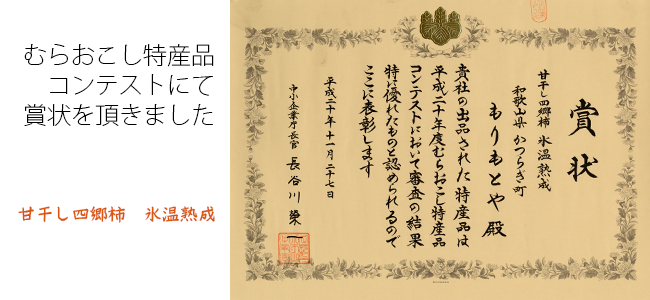 むらおこし特産品
コンテストにて
賞状を頂きました
甘干し四郷柿　氷温熟成
賞状
甘干し四郷柿　氷温熟成
和歌山県　かつらぎ町
もりもとや殿
貴社の出品された特産品は
平成二十年度むらおこし特産品
コンテストにおいて審査の結果
特に優れたものと認められるので
ここに表彰します
平成二十年十一月二十七日
中小企業庁長官　長谷川榮一